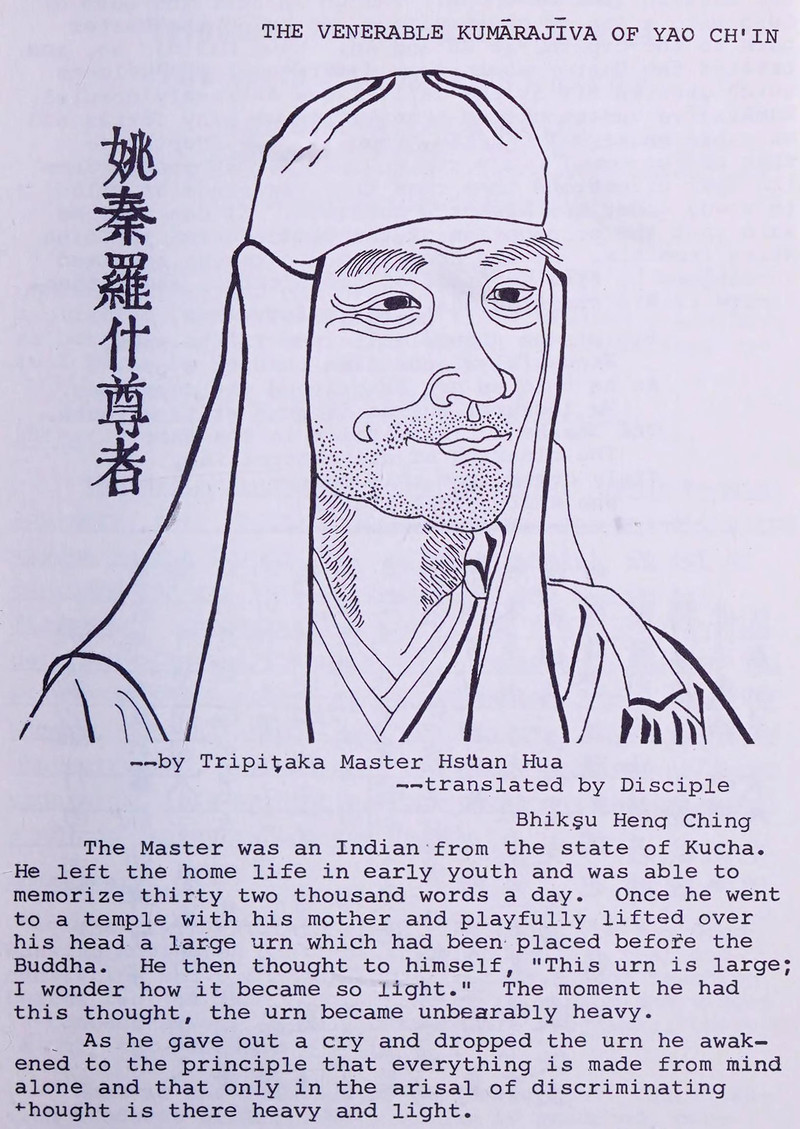 THE VENERABLE KUMĀRAJĪVA OF YAO CH'IN
姚秦羅什尊者
--by Tripiṭaka Master Hsüan Hua
--translated by Disciple
Bhikṣu Heng Ching
The Master was an Indian from the state of Kucha.
He left the home life in early youth and was able to
memorize thirty two thousand words a day. Once he went
to a temple with his mother and playfully lifted over
his head a large urn which had been placed before the
Buddha. He then thought to himself, "This urn is large;
I wonder how it became so light." The moment he had
this thought, the urn became unbearably heavy.
As he gave out a cry and dropped the urn he awak-
ened to the principle that everything is made from mind
alone and that only in the arisal of discriminating
thought is there heavy and light.